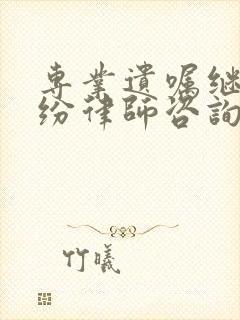 專業遺囑继
纷律師咨詢
竹曦